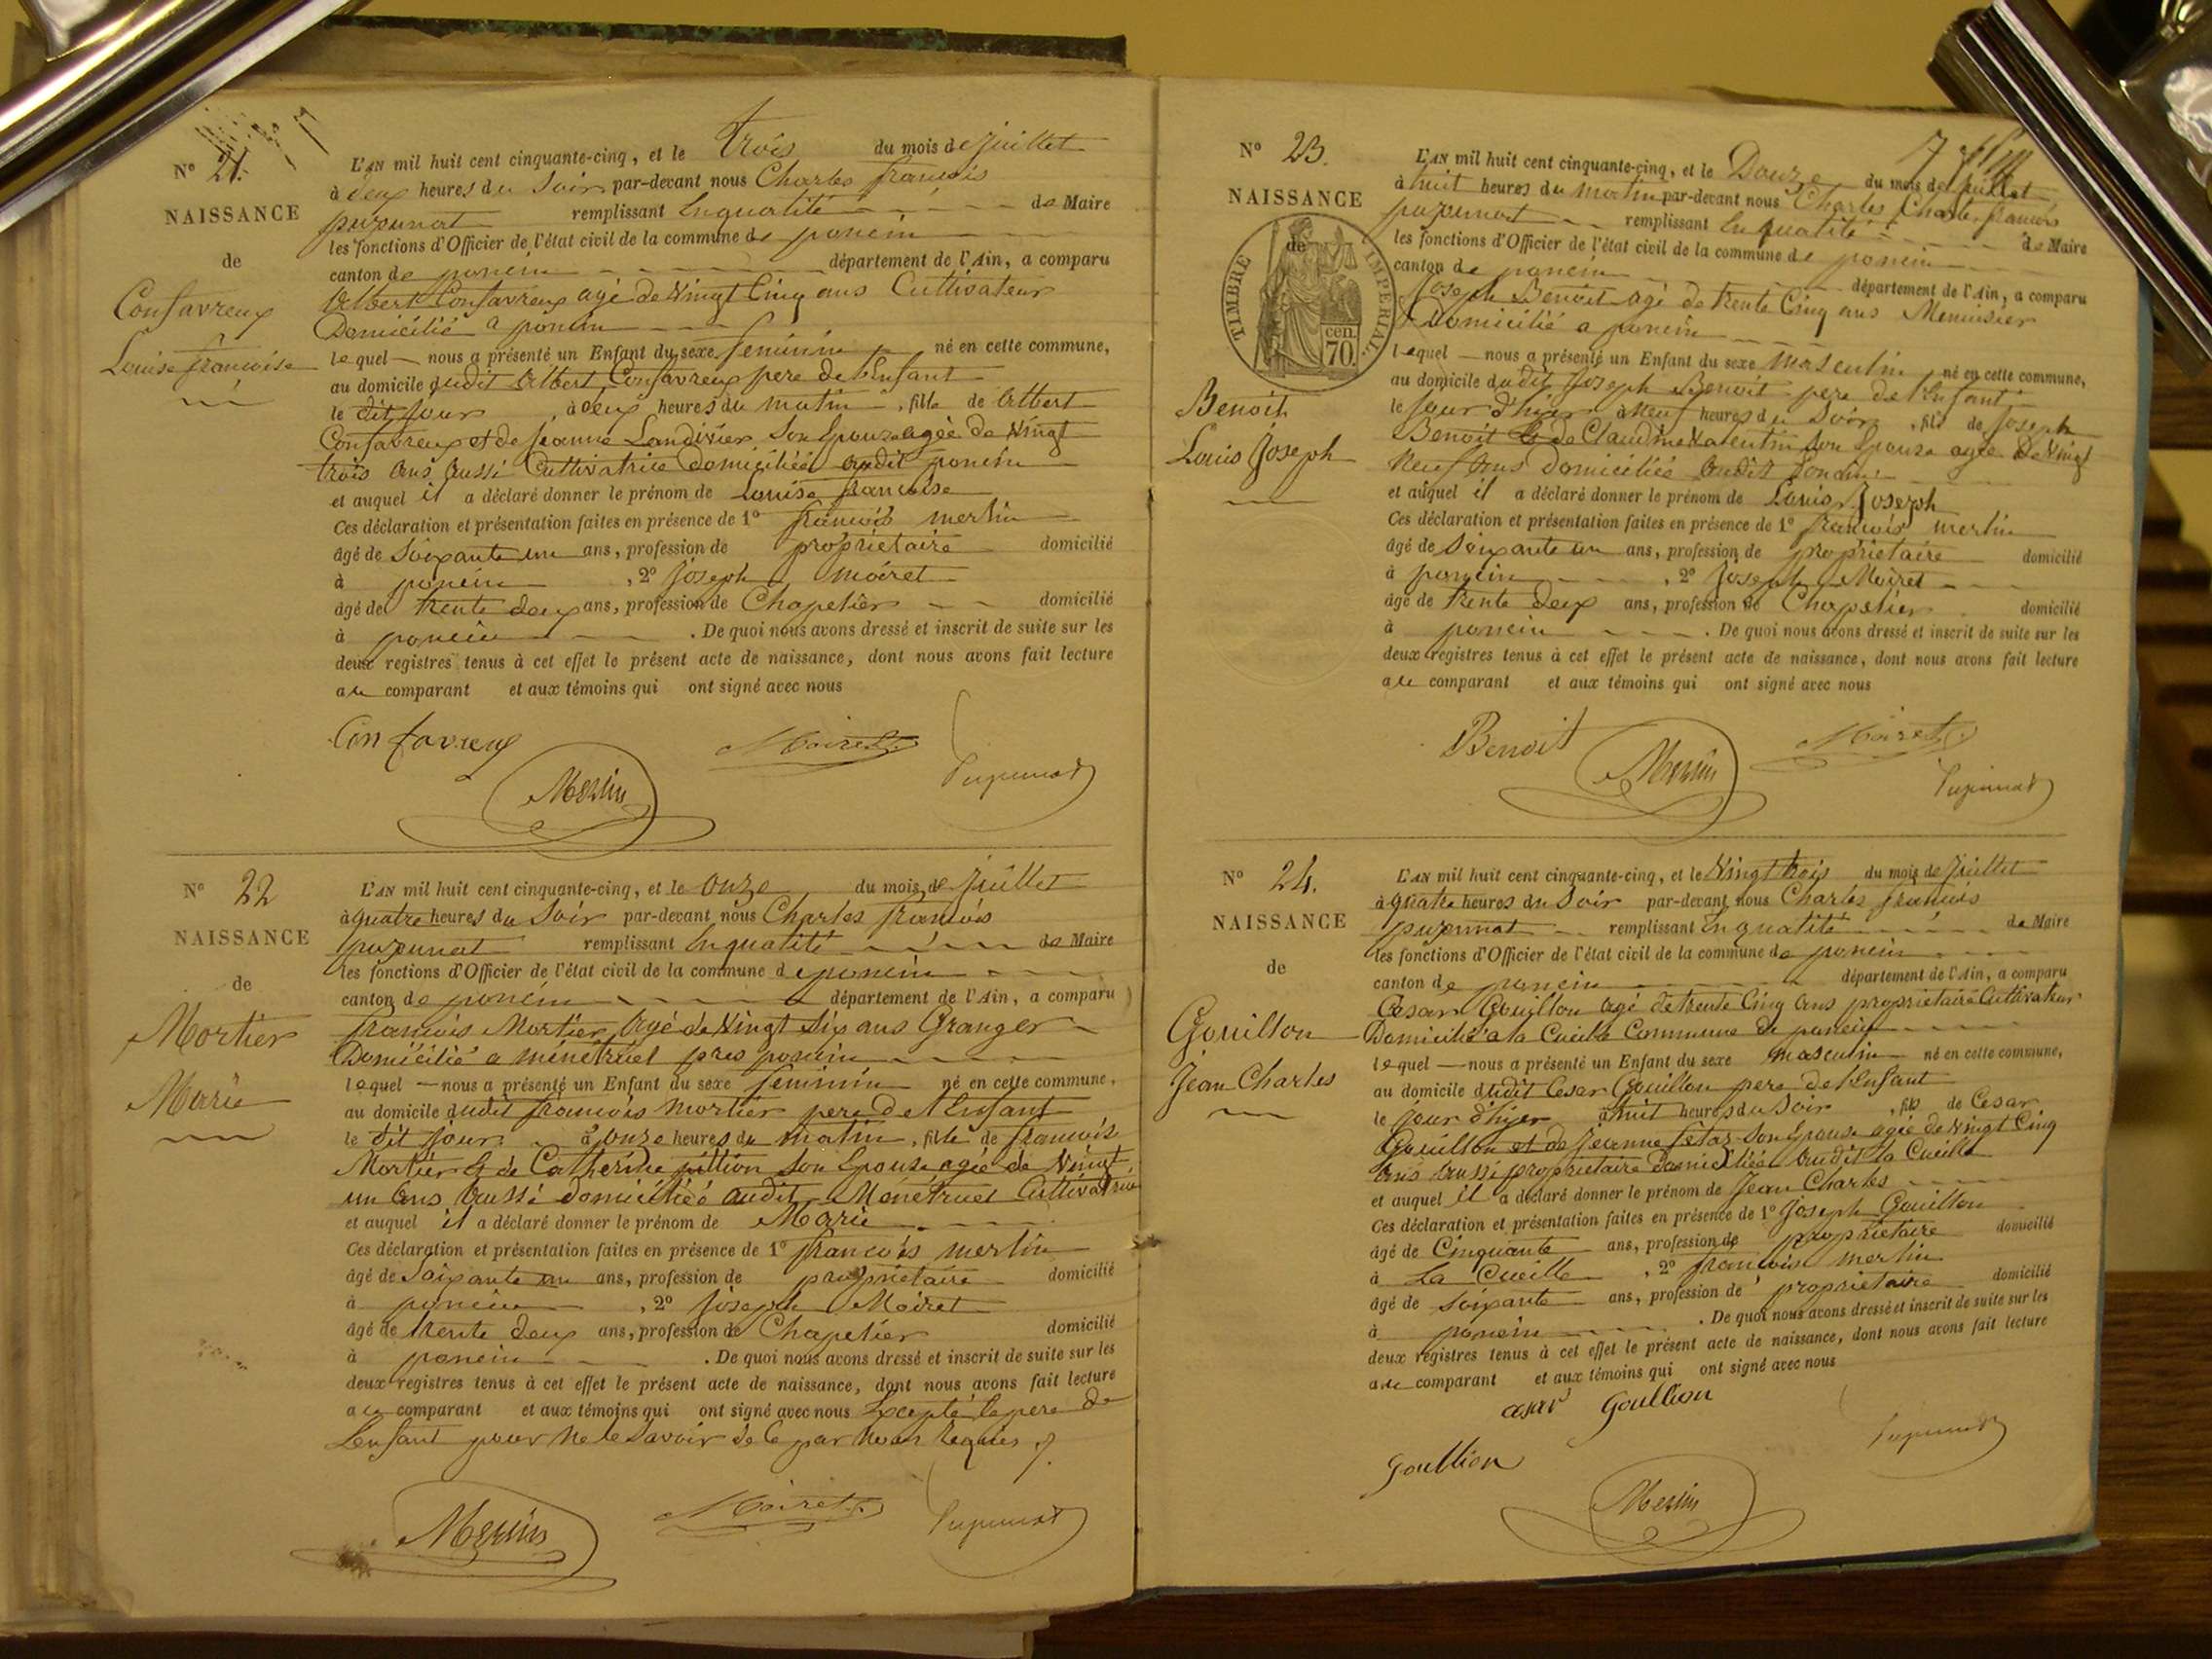 N° 21.
NAISSANCE
de
Confavreux
Louise françoise
L'AN mil huit cent cinquante-cinq, et le trois du mois de juillet
à deux heures du Soir par-devant nous Charles françois
pupunat remplissant En qualité de Maire
les fonctions d'Officier de l'état civil de la commune de poncin
canton de poncin département de l'Ain, a comparu
Albert Confavreux agé de Vingt Cinq ans Cultivateur
Domicilié a poncin
lequel nous a présenté un Enfant du sexe feminin né en cette commune,
au domicile dudit Albert Confavreux pere de l'Enfant
le dit jour, à deux heures du matin, fille de Albert
Confavreux et de Jeanne Landivier Son Epouse agée de Vingt
trois ans aussi Cultivatrice domiciliée audit poncin
et auquel il a déclaré donner le prénom de Louise françoise
Ces déclaration et présentation faites en présence de 1° françois merlin
âgé de Soixante un ans, profession de propriétaire domicilié
à poncin, 2° Joseph moiret
âgé de trente deux ans, profession de Chapelier domicilié
à poncin. De quoi nous avons dressé et inscrit de suite sur les
deux registres tenus à cet effet le présent acte de naissance, dont nous avons fait lecture
au comparant et aux témoins qui ont signé avec nous
Confavreux
Moiret
Merlin
Pupunat
N° 22
NAISSANCE
de
Mortier
Marie
L'AN mil huit cent cinquante-cinq, et le onze du mois de juillet
à quatre heures du Soir par-devant nous Charles françois
pupunat remplissant En qualité de Maire
les fonctions d'Officier de l'état civil de la commune de poncin
canton de poncin département de l'Ain, a comparu
françois Mortier, agé de Vingt six ans Granger
Domicilié a ménétruel pres poncin
lequel nous a présenté un Enfant du sexe feminin né en cette commune,
au domicile dudit françois mortier pere de l'Enfant
le dit jour à onze heures du matin, fille de françois
Mortier & de Catherine pittion Son Epouse agée de Vingt
un ans aussi domiciliée audit Ménétruel Cultivatrice
et auquel il a déclaré donner le prénom de Marie
Ces déclaration et présentation faites en présence de 1° françois merlin
âgé de Soixante un ans, profession de propriétaire domicilié
à poncin, 2° Joseph Moiret
âgé de trente deux ans, profession de Chapelier domicilié
à poncin. De quoi nous avons dressé et inscrit de suite sur les
deux registres tenus à cet effet le présent acte de naissance, dont nous avons fait lecture
au comparant et aux témoins qui ont signé avec nous Excepté le pere de
l'enfant pour ne le Savoir de ce par nous requis
Merlin
Moiret
Pupunat
N° 23.
NAISSANCE
de
TIMBRE IMPERIAL
cen.
70.
Benoit
Louis Joseph
L'AN mil huit cent cinquante-cinq, et le Douze du mois de juillet
à huit heures du matin par-devant nous Charles Charles françois
pupunat remplissant En qualité de Maire
les fonctions d'Officier de l'état civil de la commune de poncin
canton de poncin département de l'Ain, a comparu
Joseph Benoit agé de trente Cinq ans Menuisier
Domicilié a poncin
lequel nous a présenté un Enfant du sexe masculin né en cette commune,
au domicile dudit Joseph Benoit pere de l'Enfant
le jour d'hier à neuf heures du Soir, fils de Joseph
Benoit & de Claudine Valentin Son Epouse agée de Vingt
Neuf ans domiciliée audit poncin
et auquel il a déclaré donner le prénom de Louis Joseph
Ces déclaration et présentation faites en présence de 1° françois merlin
âgé de Soixante un ans, profession de propriétaire domicilié
à poncin, 2° Joseph Moiret
âgé de trente deux ans, profession de Chapelier domicilié
à poncin. De quoi nous avons dressé et inscrit de suite sur les
deux registres tenus à cet effet le présent acte de naissance, dont nous avons fait lecture
au comparant et aux témoins qui ont signé avec nous
Benoit
Moiret
Merlin
Pupunat
N° 24.
NAISSANCE
de
Gouillon
Jean Charles
L'AN mil huit cent cinquante-cinq, et le Vingt trois du mois de juillet
à quatre heures du Soir par-devant nous Charles françois
pupunat remplissant En qualité de Maire
les fonctions d'Officier de l'état civil de la commune de poncin
canton de poncin département de l'Ain, a comparu
César Gouillon agé de trente Cinq ans propriétaire Cultivateur
Domicilié a la Cueille Commune de poncin
lequel nous a présenté un Enfant du sexe masculin né en cette commune,
au domicile dudit Cesar Gouillon pere de l'Enfant
le jour d'hyer à huit heures du Soir, fils de Cesar
Gouillon et de Jeanne Son Epouse agée de Vingt Cinq
ans aussi propriétaire domiciliée audit la Cueille
et auquel il a déclaré donner le prénom de Jean Charles
Ces déclaration et présentation faites en présence de 1° Joseph Gouillon
âgé de Cinquante ans, profession de propriétaire domicilié
à La Cueille, 2° françois merlin
âgé de soixante ans, profession de propriétaire domicilié
à poncin. De quoi nous avons dressé et inscrit de suite sur les
deux registres tenus à cet effet le présent acte de naissance, dont nous avons fait lecture
au comparant et aux témoins qui ont signé avec nous
cesar Goullion
Goullion
Pupunat
Merlin